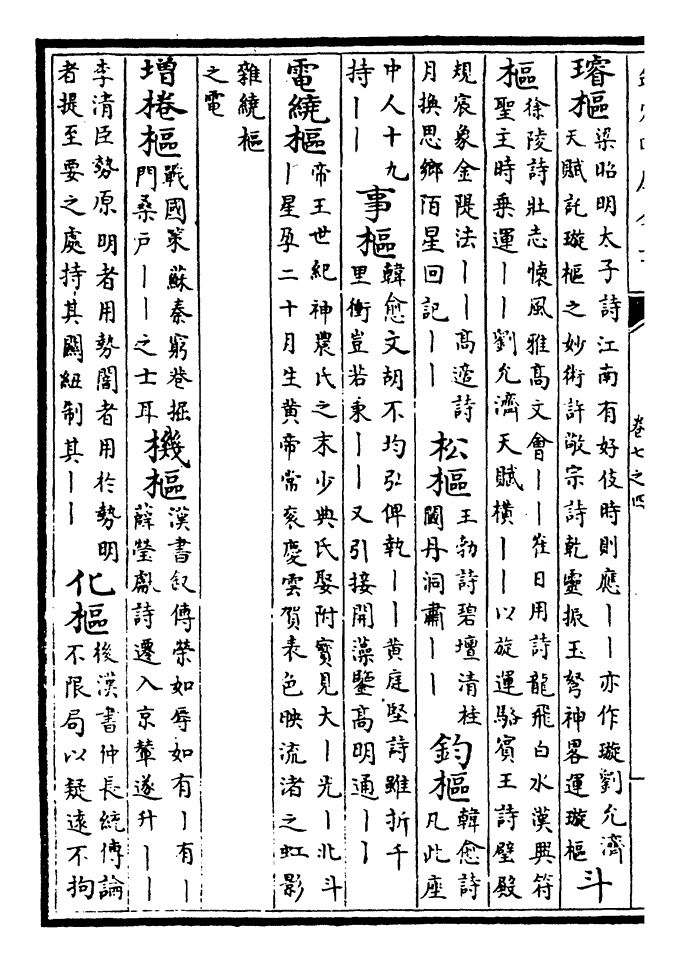 卷七之四
璿樞 梁昭明太子詩江南有好伎時則應丨丨亦作璇劉允濟
天賦託璇樞之妙術許敬宗詩乾靈振玉弩神畧運璇樞 斗
樞 徐陵詩壯志懷風雅高文會丨丨崔日用詩龍飛白水漢興符
聖主時乗運丨丨劉允濟天賦橫丨丨以旋運駱賓王詩壁殿
規宸象金隄法丨丨髙適詩
月換思鄉陌星回記丨丨
松樞 王勃詩碧壇清桂
閾丹洞肅丨丨
鈞樞 韓愈詩
凡此座
中人十九
持丨丨
事樞 韓愈文胡不均弘俾執丨丨黄庭堅詩雖折千
里衝豈若秉丨丨又引接開藻鑒高明通丨丨
電繞樞 帝王世紀神農氏之末少典氏娶附寳見大丨光丨北斗
丨星孕二十月生黄帝常衮慶雲賀表色映流渚之虹影
雜繞樞
之電
增棬樞 戰國策蘇秦窮巷掘
門桑户丨丨之士耳
機樞 漢書叙傳榮如辱如有丨有丨
薛瑩獻詩遷入京輦遂升丨丨
李清臣勢原明者用勢闇者用於勢明
者提至要之處持其關紐制其丨丨
化樞 後漢書仲長統傳論
不限局以疑逺不拘